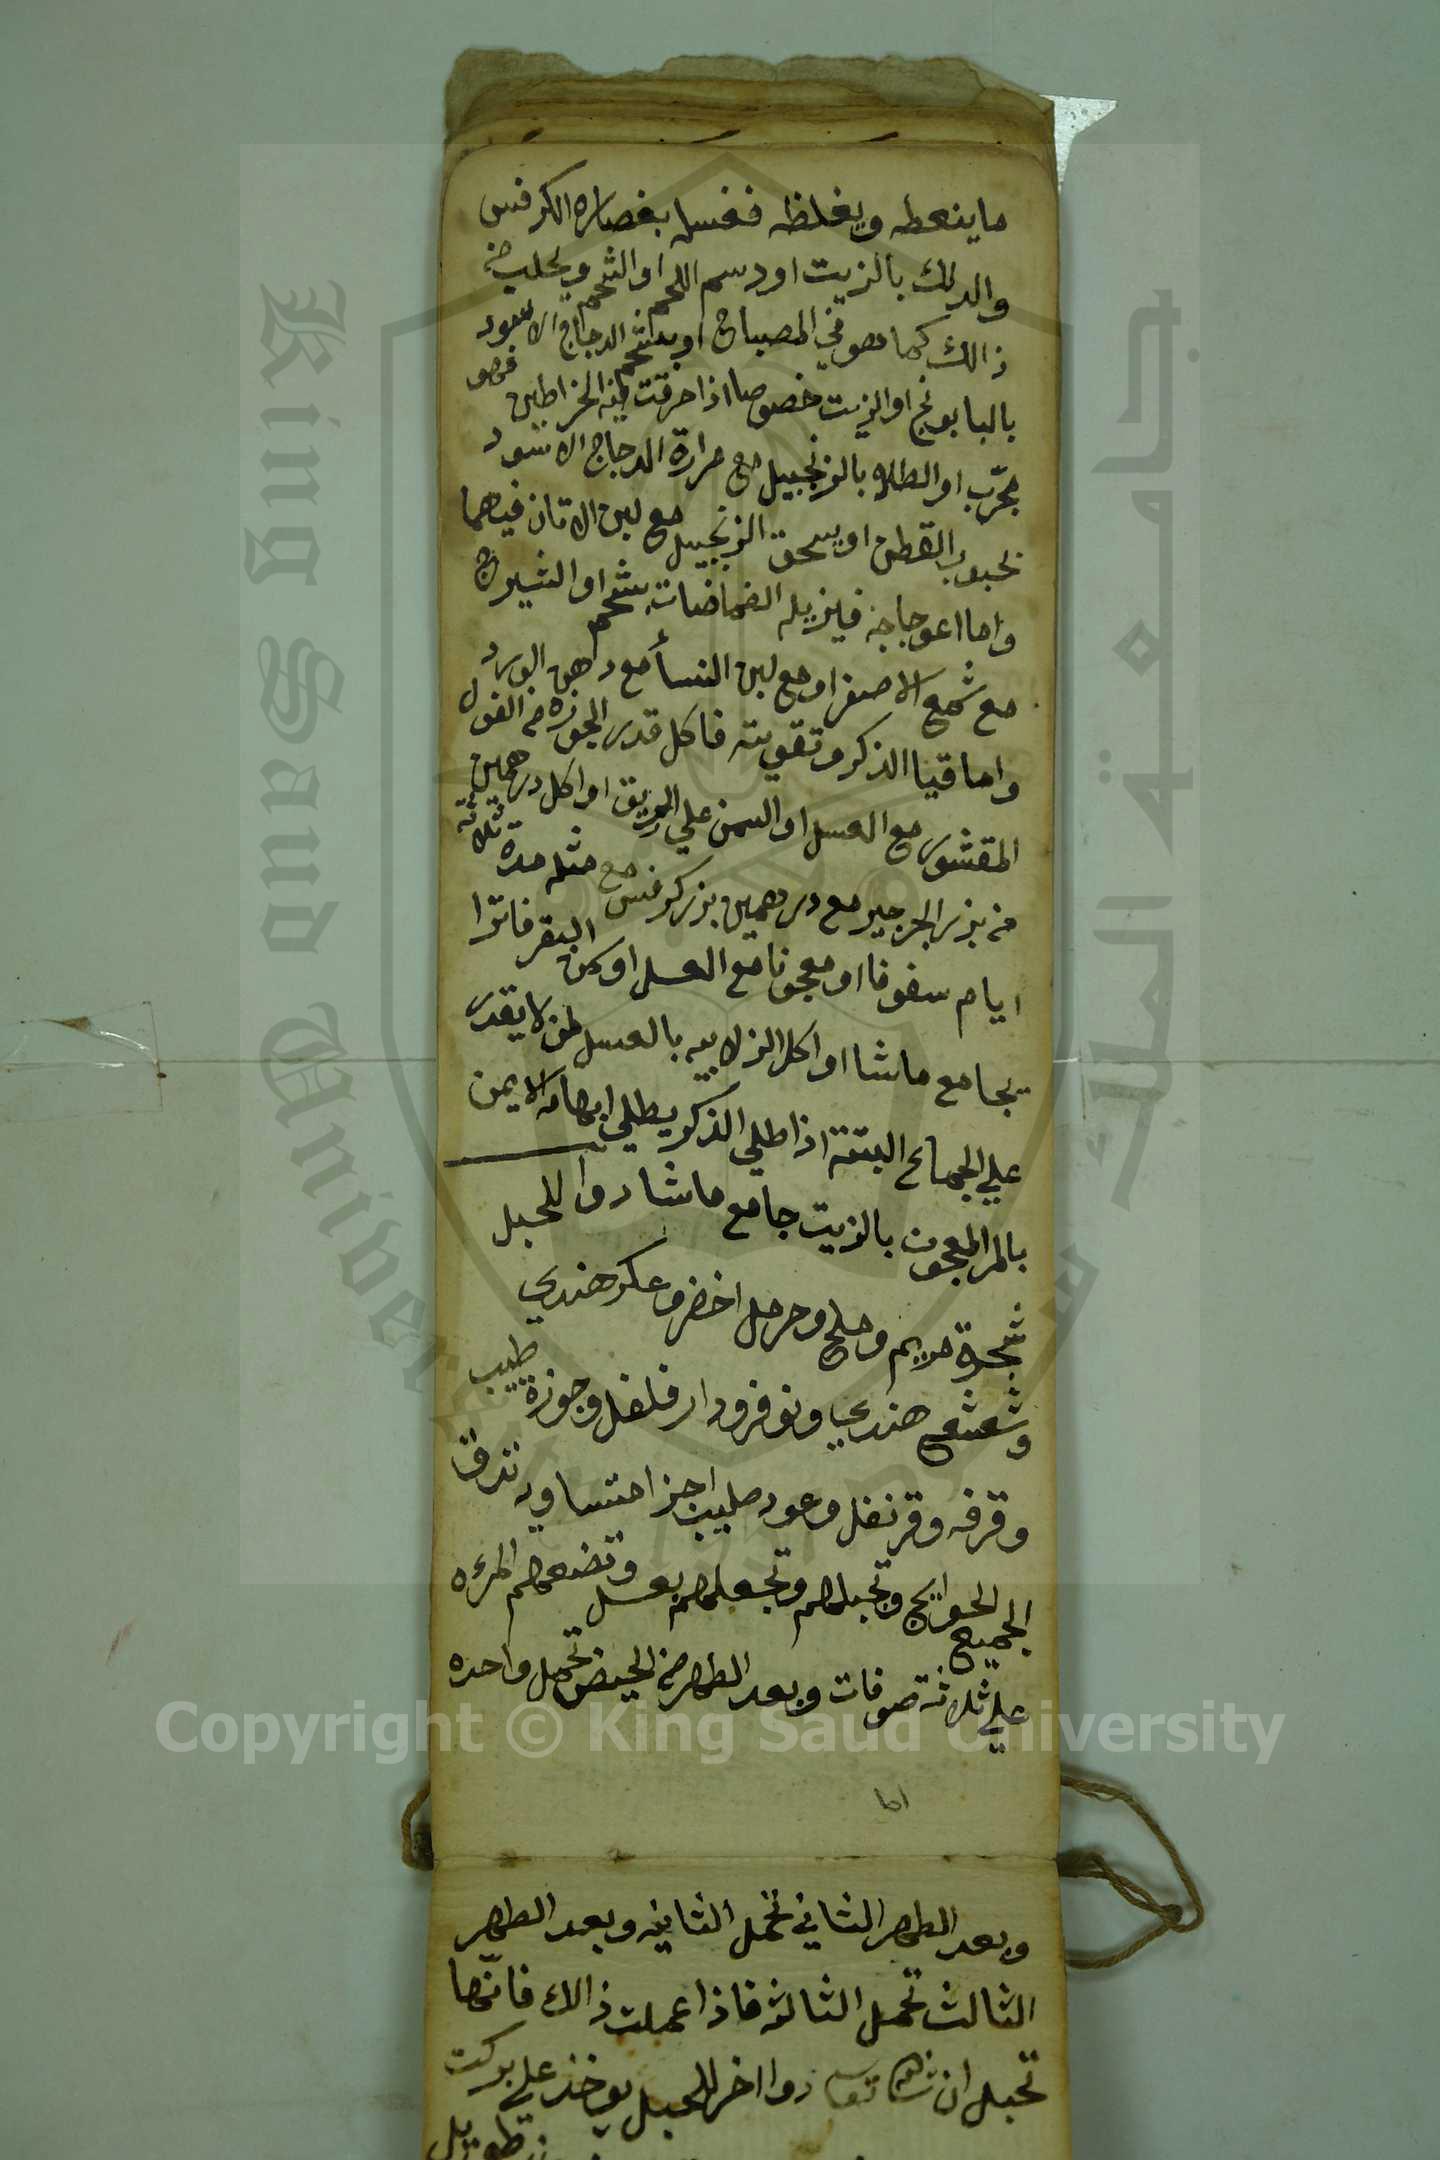 ما ينعظه ويغلظه فغسله بغصاره الكرفس
والدلك بالزيت او دسم اللحم او الشحم ويجلب من
ذالك كما هو في المصباح او بشحم الدجاج الاسود
بالبابونج او الزيت خصوصا اذا حرقت فيه الخراطين فهو
مجرّب او الطلاء بالزنجبيل مع مرارة الدجاج الاسود
بحبوب القطن او يسحق الزنجبيل مع لبن الاتان فيهما
واما اعوجاجه فيزيله الضماضات بشحم او الشيرج
مع شمع الاصفر او مع لبن النسأ مع دهن الورد
واما قيا الذكر وتقويته فاكل قدر الجوزه من الفول
المقشور مع العسل او السمن علي الريق او اكل درهمين
من بزر الجرجير مع درهمين بزر كرفس مع مثله مدة ثلاثه
ايام سفوفا او معجونا مع العسل او سمن البقر فاترا
يجامع ماشا او اكل الزلابيه بالعسل لمن لا يقدر
علي الجماع البتة اذا طلي الذكر يطلي ابهامه الايمن
بالمر المعجون بالزيت جامع ماشا دوا للحبل
شجرة مريم وملح وحرمل اخضر وعكر هندي
وشعشع هندي ونوفر ودار فلفل وجوزة طيب
وقرفه وقرنفل وعود صليب اجزا متساويه تدق
الجميع الحوايج وتجبلهم وتجعلهم بعسل وتضعهم المرءه
علي ثلاثة صوفات وبعد الطهر من الحيض تحمل واحده
وبعد الطهر الثاني تحمل الثانيه وبعد الطهر
الثالث تحمل الثالثه فاذا عملت ذالك فانّها
تحبل ان شاالله تعالى دوا اخر للحبل يوخذ علي بركت